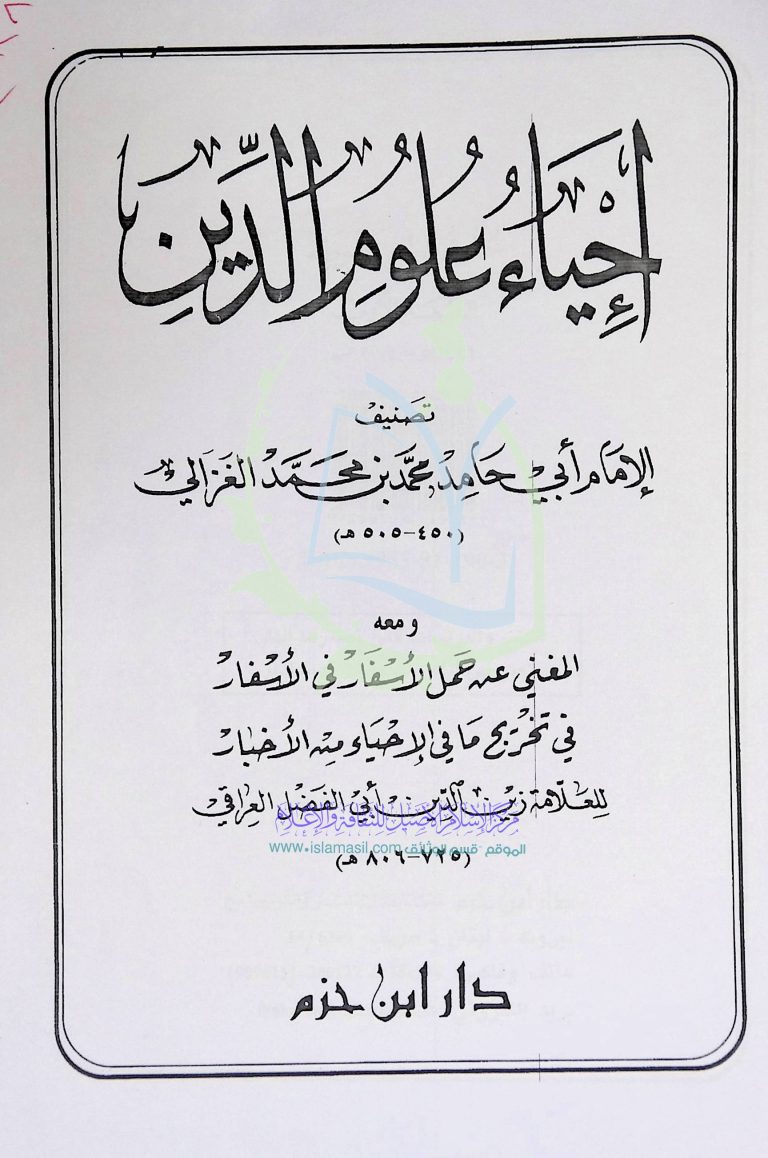 إِحْيَاءُ عُلُومُ الدِّينِ
تصنيف
الإمام أبي حامد محمّد بن محمّد الغزالي
(٤٥٠-٥٠٥ هـ)
ومعه
المغني عن حمل الأسفار في الأسفار
في تخريج ما في الإحياء من الأخبار
للعلّامة زين الدين أبي الفضل العراقي
مركز الإسلام الأصيل للثقافة والإعلام
الموقع - قسم الوثائق www.islamasil.com
(٧٢٥-٨٠٦ هـ)
دار ابن حزم